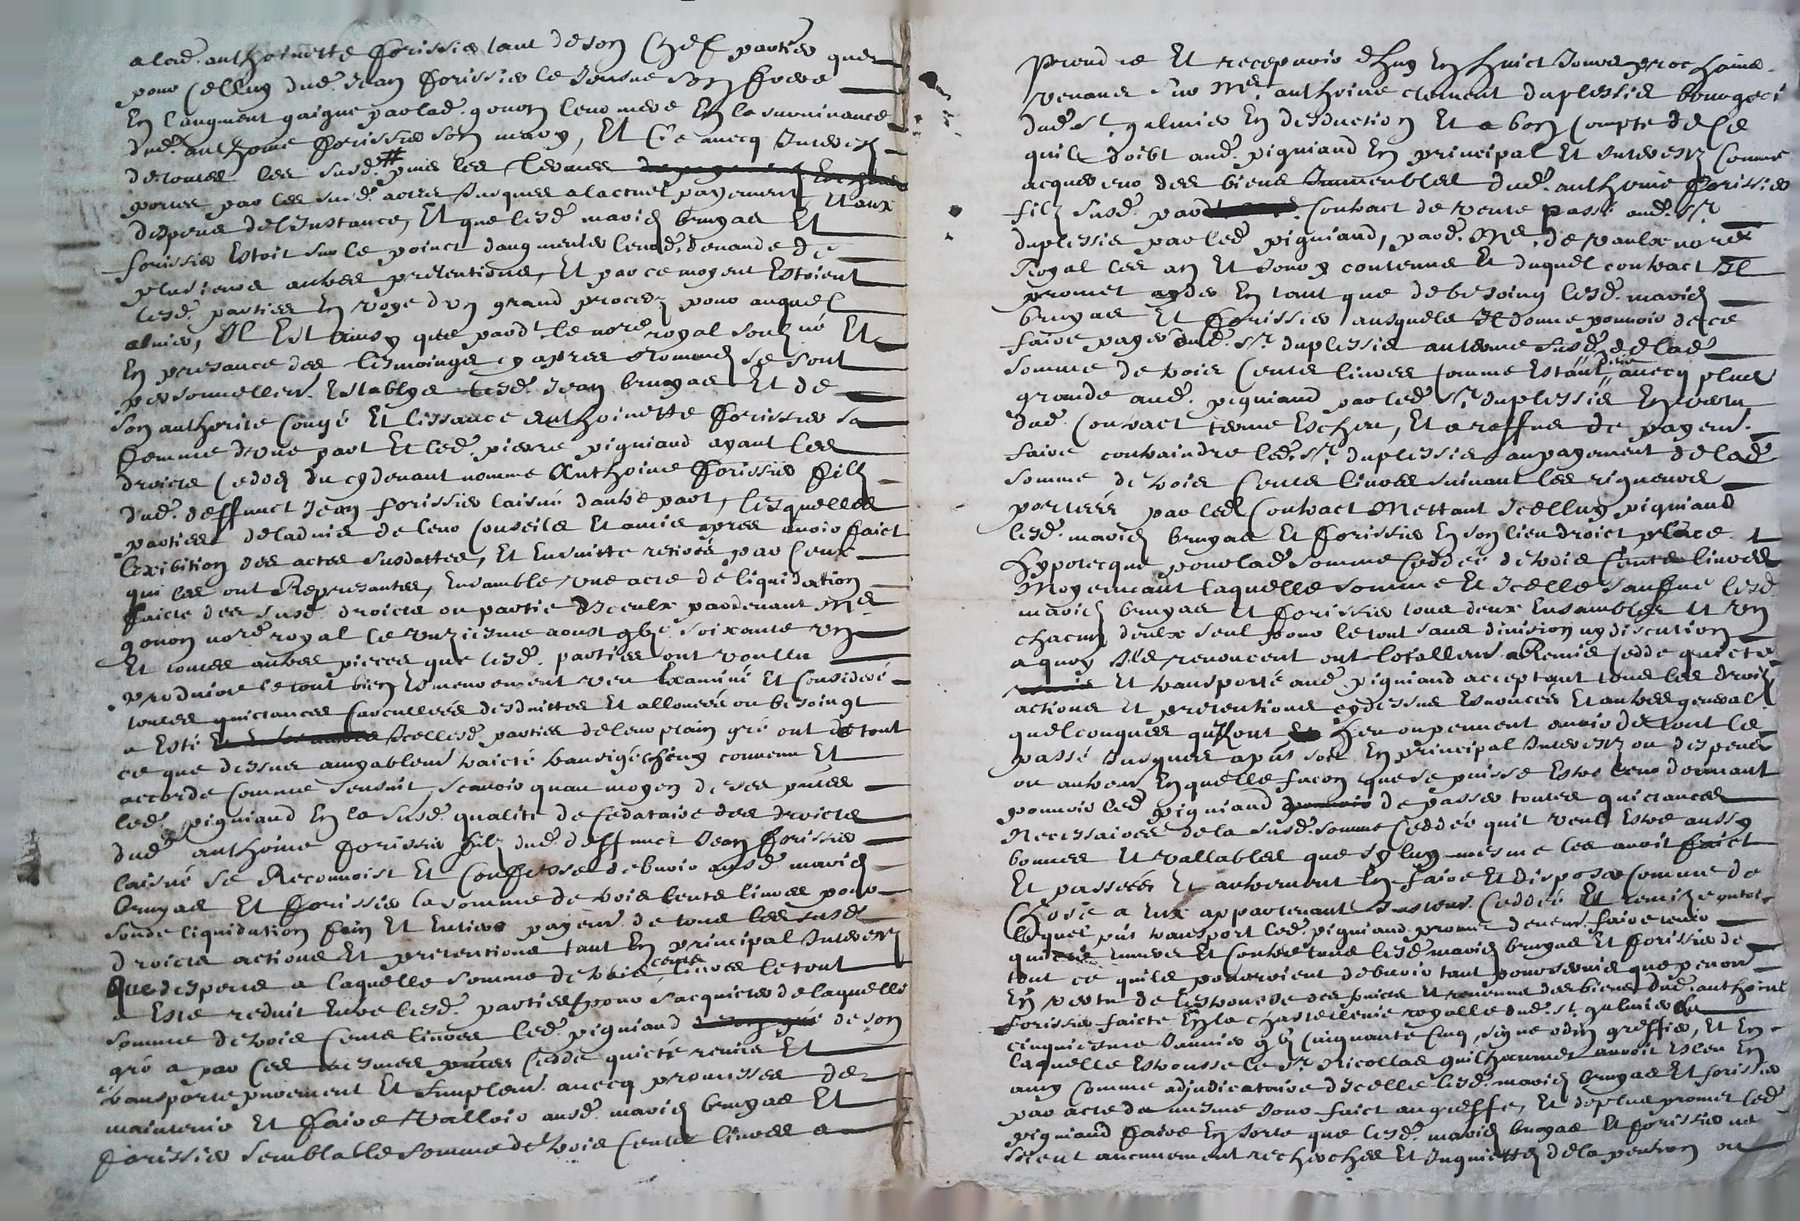 a lad. anthoinette forissier tant de son chef parties que
pour celluy dud. Jean forissier le jeusne son frere
En l'augment gaigné par lad. gonon leur mere En la survivance
dud. anthoine forissier son mary, Et ce avecq Interestz
de toutes les susd. # puis les termes
portes par les susd. actes Jusques a lactuel payement, Et aux
despens de l'Instance, Et que lesd. mariés bruyas Et
forissier Estoit sur le poinct daugmenter leurd. demande de
plusieurs autres pretentions, Et par ce moyent Estoient
lesd. parties En voye d'un grand procez pour auquel
obvier, Il Est Ainsy que pard.t le nore royal soubzné Et
En presance des tesmoingz cy apres Nommez se sont
personnellem. Establys lesd. Jean bruyas Et de
son authorite congé Et lissance anthoinette forissier sa
femme d'une part Et led. pierre pigniard ayant les
droictz ceddez du cydevant nomme Anthoine forissier filz
dud. deffunct Jean forissier laisné dautre part, lesquelles
parties de ladvis de leur conseilz Et amis apres avoir faict
lexibition des actes susdattes, Et Ensuitte retirés par ceux
qui les ont Representes, Ensamble une acte de liquidation
faicte des susd. droictz ou partie d'Iceulx pardevant Me
gonon nore royal le unziesme aoust soixante un
Et toutes autres pieces que lesd. parties ont voullu
produire le tout bien Et meurement veu Examiné Et consideré
toutes quictances carcullees desduittes Et allouees ou besoingt
a Esté Icelles parties de leur plain gré ont de tout
ce que dessus amyablem. traicté transigé convenu Et
accorde comme sensuit, scavoir quau moyen des pntes
led. pigniard En la susd. qualité de cedataire des droictz
dud. anthoine forissier filz dud. deffunct Jean forissier
laisné se Reconnoist Et confesse debvoir ausd. mariés
bruyas Et forissier la somme de trois cents livres pour
solde liquidation fin Et Entier payem. de tous les susd.
droictz actions Et pretentions tant En principal Interestz
Que despens a laquelle somme de trois cents livres le tout
a Esté reduit Entre lesd. parties, pour sacquicter de laquelle
somme de trois cents livres led. pigniard de son
gré a par ces mesmes pntes cedde quicté remis Et
transporte purement Et simplem. avecq promisses de
maintenir Et faire valloir ausd. mariés bruyas Et
forissier semblable somme de trois cents livres a
Prendre Et recepvoir d'huy En huict Jours prochains
venans sur Me. anthoine clement duplessis bourgeois
dud. St. galmier En desduction Et a bon compte de ce
quil doibt aud. pigniard En principal Et Interestz comme
acquereur des biens Immeubles dud. anthoine forissier
filz susd. par contract de vente passé aud. Sr.
duplessis par led. pigniard, pard. Me. de vaulx nore
Royal les an Et Jour y contenus Et duquel contract Il
promet ayder En tant que de besoing lesd. mariés
bruyas Et forissier ausquelz Il donne pouvoir de ce
faire payer dud. Sr. duplessis au terme susd. de lad.
somme de trois cents livres comme Estant deue avecq plus
grande aud. pigniard par led. Sr. duplessis En vertu
dud. contract terme Escheu, Et a reffus de payem.
faire contraindre led. Sr. duplessis au payement de lad.
somme de trois cents livres suivant les rigueurs
portées par led. contract Mettant Icelluy pigniard
lesd. mariés bruyas Et forissier En son lieu droict place Et
hypotecque pour lad. somme ceddée de trois cents livres
Moyennant laquelle somme Et Icelle sauf lesd.
mariés bruyas Et forissier tous deux Ensambles Et un
chacun deulx seul pour le tout sans division ny discution
a quoy Ilz renoncent ont lotallem. Remis cedde quicté
Et transporté aud. pigniard acceptant tous les droictz
actions Et pretentions cydessus Enoncés Et autres generall
quelconques quilz ont heu ou peuvent avoir de tout le
passé Jusques a pnt soit En principal Interestz ou despens
ou autrem. En quelle facon que se puisse Estre leur donnant
pouvoir led. pigniard de passer toutes quictances
Necessaires de la susd. somme ceddée quil veut Estre aussy
bonnes Et vallables que sy luy mesme les avoit faict
Et passées Et autrement En faire Et disposer comme de
Chose a Eux appartenant Et remise
lequel pnt transport led. pigniard promet faire tenir
quicte Envers Et contre tous lesd. mariés bruyas Et forissier de
tout ce quilz pourroient debvoir tant pour servis que pention
En vertu de lestrousse des fruicts Et revenus des biens dud. anthoine
forissier faicte En la chastellenie royalle dud. St. galmier le
cinquiesme Janvier cinquante cinq, signe odin greffier, Et En
laquelle Estrousse le Sr. Nicollas guilhaumet avoit Esleu En
amy comme adjudicataire d'Icelle lesd. mariés bruyas Et forissier
par acte du mesme Jour faict au greffe, Et de plus promet led.
pigniard faire En sorte que lesd. mariés bruyas Et forissier ne
soient aucunement recherches Et Inquiettés de la pention ou